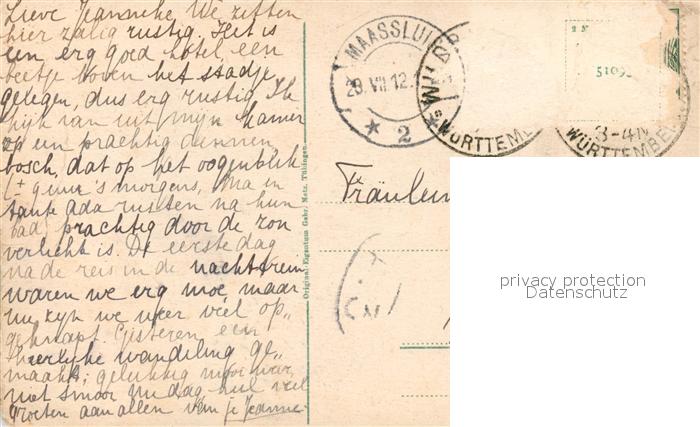 Lieve Jeanneke We zitten
hier zalig rustig. Het is
een erg goed hotel, een
beetje boven het stadje
gelegen, dus erg rustig Ik
kijk van uit mijn kamer
zo een prachtig dennen
bosch, dat op het oogenblik
uur 's morgens, Ma en
tante Ada rusten na hun
bad prachtig door de zon
verlicht is. De eerste dag
na de reis in de nachttrein
waren we erg moe, maar
nu zijn we weer veel op„
geknapt. Gisteren een
heerlijke wandeling ge„
maakt; gelukkig mooi weer,
niet smoor Nu dag heel veel
groeten aan allen van je Jeanne
Original-Eigentum Gebr. Metz, Tübingen.
MAASSLUIS
29.VII.12.
2
WÜRTTEMB
3-4N
WÜRTTEMBE
5109
Fräulein
privacy protection
Datenschutz